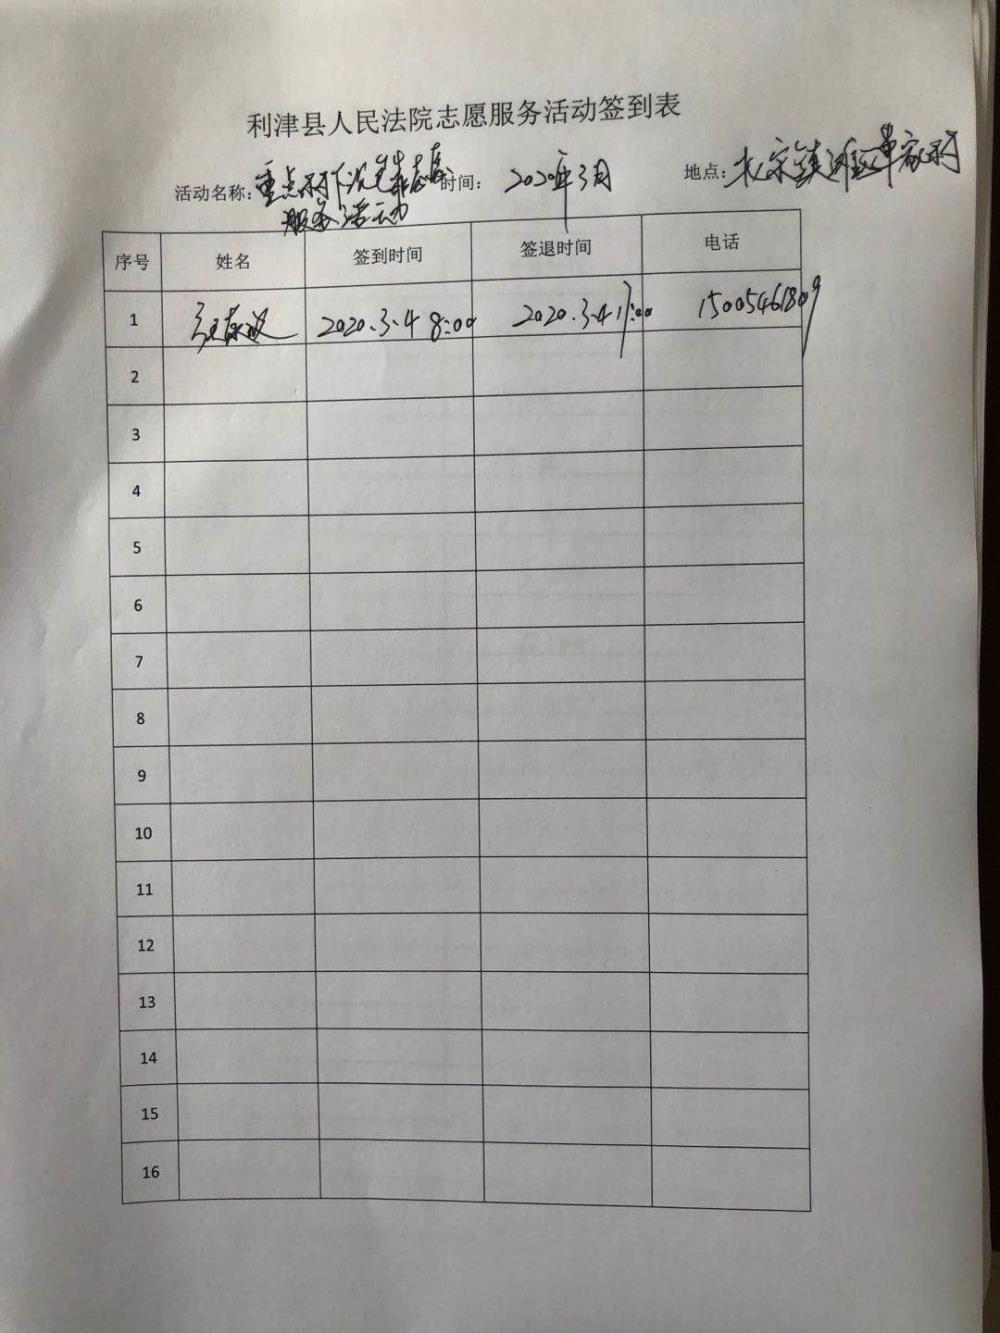 利津县人民法院志愿服务活动签到表
活动名称: 重点村下沉 志愿 时间: 2020年3月 地点: 宗镇滩区 家村
服务活动
序号 姓名 签到时间 签退时间 电话
1 2020.3.4 8:00 2020.3.4 17:00 15005461809
2
3
4
5
6
7
8
9
10
11
12
13
14
15
16